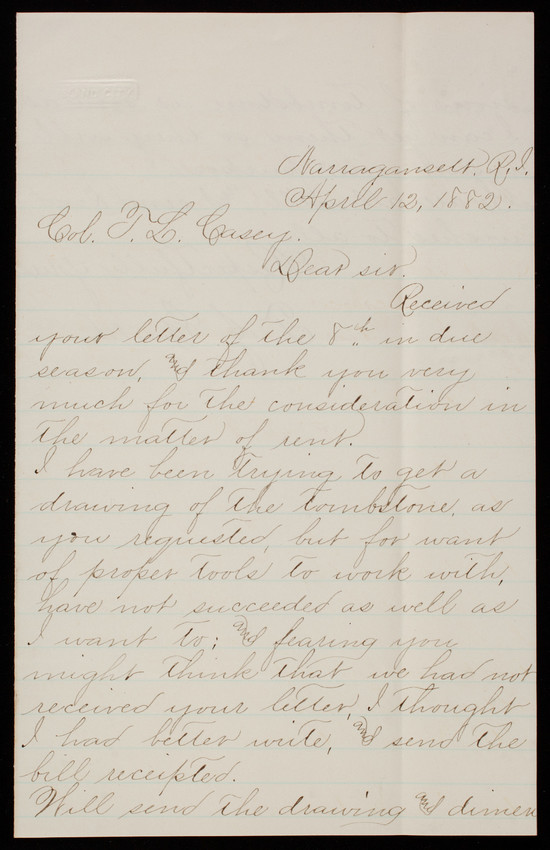 Narragansett. R. I.
April 12, 1882.
Col. T. L. Casey.
Dear sir.
Received
your letter of the 8th in due
season, and thank you very
much for the consideration in
the matter of rent.
I have been trying to get a
drawing of the tombstone, as
you requested, but for want
of proper tools to work with,
have not succeeded as well as
I want to; and fearing you
might think that we had not
received your letter, I thought
I had better write, and send the
bill receipted.
Will send the drawing and dimen